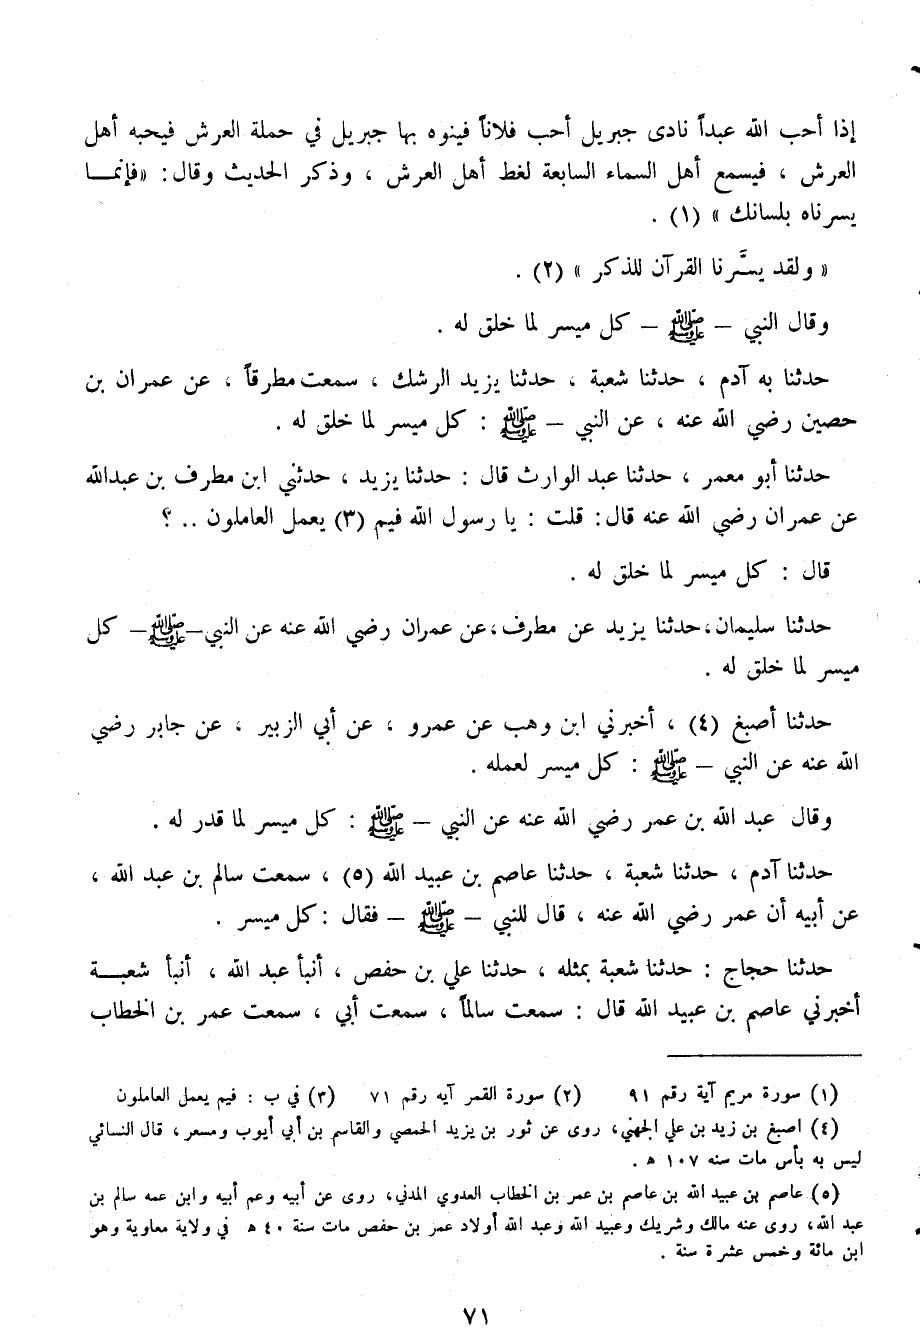 إذا أحب الله عبداً نادى جبريل أحب فلاناً فينوه بها جبريل في حملة العرش فيحبه أهل
العرش ، فيسمع أهل السماء السابعة لغط أهل العرش ، وذكر الحديث وقال : «فإنمـــا
يسرناه بلسانك » (١) .
« ولقد يسَّرنا القرآن للذكر » (٢) .
وقال النبي – ﷺ – كل ميسر لما خلق له .
حدثنا به آدم ، حدثنا شعبة ، حدثنا يزيد الرشك ، سمعت مطرفاً ، عن عمران بن
حصين رضي الله عنه ، عن النبي – ﷺ : كل ميسر لما خلق له .
حدثنا أبو معمر ، حدثنا عبد الوارث قال : حدثنا يزيد ، حدثني ابن مطرف بن عبدالله
عن عمران رضي الله عنه قال : قلت : يا رسول الله فيم (٣) يعمل العاملون .. ؟
قال : كل ميسر لما خلق له .
حدثنا سليمان، حدثنا يزيد عن مطرف، عن عمران رضي الله عنه عن النبي–ﷺ– كل
ميسر لما خلق له .
حدثنا أصبغ (٤) ، أخبرني ابن وهب عن عمرو ، عن أبي الزبير ، عن جابر رضي
الله عنه عن النبي – ﷺ : كل ميسر لعمله .
وقال عبد الله بن عمر رضي الله عنه عن النبي – ﷺ : كل ميسر لما قدر له .
حدثنا آدم ، حدثنا شعبة ، حدثنا عاصم بن عبيد الله (٥) ، سمعت سالم بن عبد الله ،
عن أبيه أن عمر رضي الله عنه ، قال للنبي – ﷺ – فقال : كل ميسر .
حدثنا حجاج : حدثنا شعبة بمثله ، حدثنا علي بن حفص ، أنبأ عبد الله ، أنبأ شعبـــة
أخبرني عاصم بن عبيد الله قال : سمعت سالماً ، سمعت أبي ، سمعت عمر بن الخطاب
(١) سورة مريم آية رقم ٩١ (٢) سورة القمر آيه رقم ٧١ (٣) في ب : فيم يعمل العاملون
(٤) اصبغ بن زيد بن علي الجهني، روى عن ثور بن يزيد الحمصي والقاسم بن أبي أيوب ومسعر، قال النسائي
ليس به بأس مات سنه ١٠٧ ھ .
(٥) عاصم بن عبيد الله بن عاصم بن عمر بن الخطاب العدوي المدني، روى عن أبيه وعم أبيه وابن عمه سالم بن
عبد الله، روى عنه مالك وشريك وعبيد الله وعبد الله أولاد عمر بن حفص مات سنة ٤٠ ھ في ولاية معاوية وهو
ابن مائة وخمس عشرة سنة .
٧١